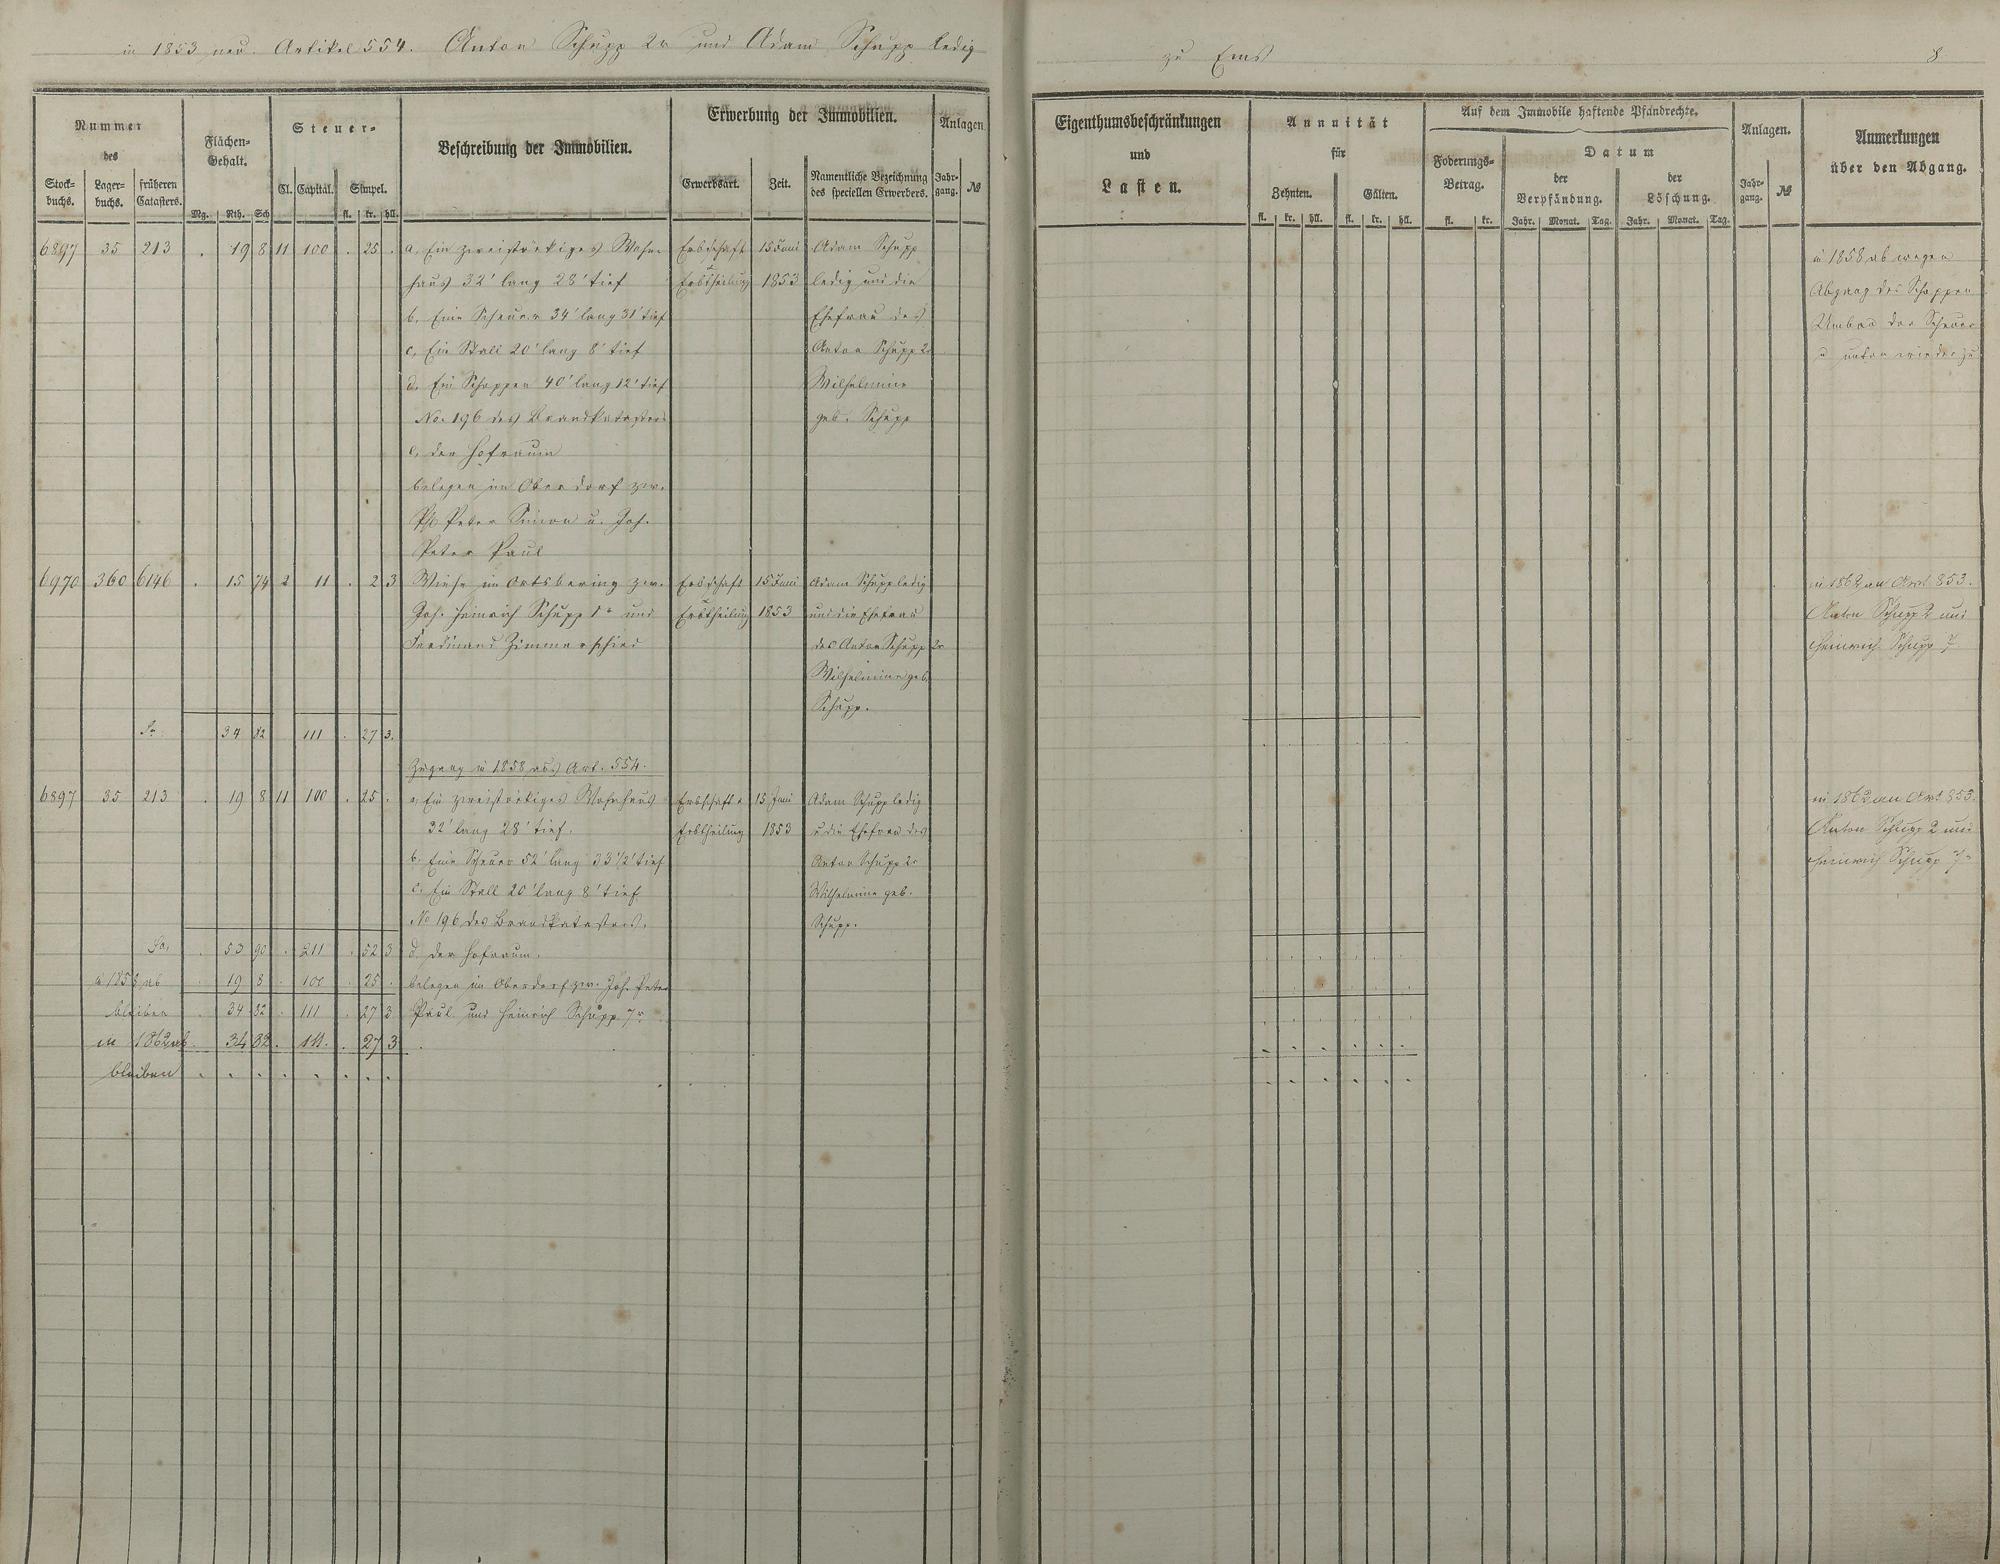 in 1853 neu. Artikel 554. Anton Schupp 2r und Adam Schupp ledig zu Ems 8
Nummer des
Stock-buchs. Lager-buchs. früheren Catasters.
Flächen-Gehalt.
Mg. Rth. Sch
Steuer-
Cl. Capital. Simpel.
fl. kr. hll.
Beschreibung der Immobilien.
Erwerbung der Immobilien.
Erwerbsart. Zeit. Namentliche Bezeichnung des speciellen Erwerbers.
Anlagen
Jahr-gang. №
Eigenthumsbeschränkungen
und
Lasten.
Annuität
für
Zehnten. Gülten.
fl. kr. hll. fl. kr. hll.
Auf dem Immobile haftende Pfandrechte.
Foderungs-Betrag.
fl. kr.
Datum
der Verpfändung. der Löschung.
Jahr. Monat. Tag. Jahr. Monat. Tag.
Anlagen.
Jahr-gang. №
Anmerkungen
über den Abgang.
6897 35 213 . 19 8 11 100 . 25 . a, Ein zweistöckiges Wohn- Erbschaft 15 Juni Adam Schupp in 1858 ab wegen
haus 32' lang 28' tief Erbtheilung 1853 ledig und die Abgang des Schoppen
b, Eine Scheuer 34' lang 31' tief Ehefrau des Umbau der Scheuer
c, Ein Stall 20' lang 8' tief Anton Schupp 2r u unten wieder zu
d, Ein Schoppen 40' lang 12' tief Wilhelmine
No. 196 des Brandkatasters geb. Schupp
e, der Hofraum
belegen im Oberdorf zw.
Peter Simon u. Joh.
Peter Paul
6970 360 6146 . 15 74 2 11 . 2 3 Wiese im Ortsbering zw. Erbschaft 15 Juni Adam Schupp ledig in 1862 an Art 853.
Joh. Heinrich Schupp 1r und Erbtheilung 1853 und die Ehefrau Anton Schupp 2 und
Ferdinand Zimmerschied des Anton Schupp 2r Heinrich Schupp 7
Wilhelmine geb.
Schupp.
Sa 34 82 111 . 27 3.
Zugang in 1858 aus Art. 554.
6897 35 213 . 19 8 11 100 . 25 . a, Ein zweistöckiges Wohnhaus Erbschaft u 15 Juni Adam Schupp ledig in 1862 an Art 853.
32' lang 28' tief. Erbtheilung 1853 u die Ehefrau des Anton Schupp 2 und
b, Eine Scheuer 52' lang 33 1/2' tief Anton Schupp 2r Heinrich Schupp 7r
c, Ein Stall 20' lang 8' tief Wilhelmine geb.
No 196 des Brandkatasters. Schupp.
Sa, . 53 90 . 211 . 52 3 d, der Hofraum.
in 1858 ab . 19 8 . 100 . 25 . belegen im Oberdorf zw. Joh. Peter
bleiben . 34 82 . 111 . 27 3 Paul und Heinrich Schupp 7r
in 1862 ab . 34 82 . 111 . . 27 3
bleiben . . . . . . . .